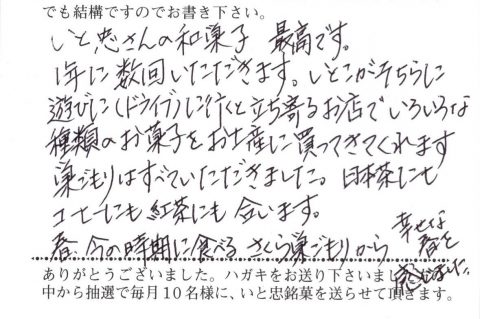 でも結構ですのでお書き下さい。
いと忠さんの和菓子 最高です。
1年に数回いただきます。いとこがそちらに
遊びに(ドライブ)に行くと立ち寄るお店でいろいろな
種類のお菓子をお土産に買ってきてくれます
巣ごもりはすべていただきました。日本茶にも
コーヒーにも紅茶にも合います。
春、今の時期に食べる さくら巣ごもりから 幸せな
春を
感じました。
ありがとうございました。ハガキをお送り下さいました
中から抽選で毎月10名様に、いと忠銘菓を送らせて頂きます。